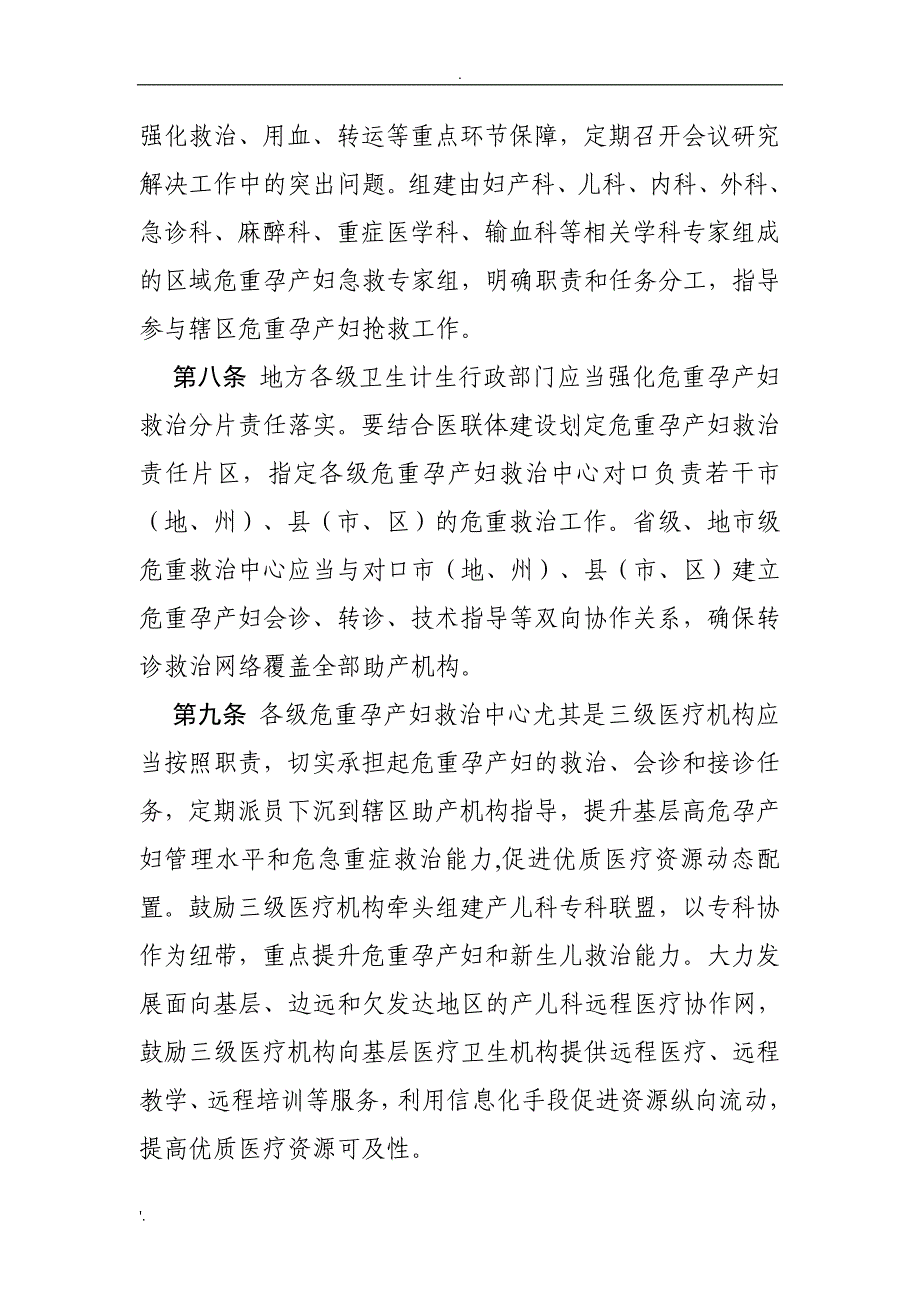 .
强化救治、用血、转运等重点环节保障，定期召开会议研究
解决工作中的突出问题。组建由妇产科、儿科、内科、外科、
急诊科、麻醉科、重症医学科、输血科等相关学科专家组成
的区域危重孕产妇急救专家组，明确职责和任务分工，指导
参与辖区危重孕产妇抢救工作。
第八条 地方各级卫生计生行政部门应当强化危重孕产妇
救治分片责任落实。要结合医联体建设划定危重孕产妇救治
责任片区，指定各级危重孕产妇救治中心对口负责若干市
（地、州）、县（市、区）的危重救治工作。省级、地市级
危重救治中心应当与对口市（地、州）、县（市、区）建立
危重孕产妇会诊、转诊、技术指导等双向协作关系，确保转
诊救治网络覆盖全部助产机构。
第九条 各级危重孕产妇救治中心尤其是三级医疗机构应
当按照职责，切实承担起危重孕产妇的救治、会诊和接诊任
务，定期派员下沉到辖区助产机构指导，提升基层高危孕产
妇管理水平和危急重症救治能力,促进优质医疗资源动态配
置。鼓励三级医疗机构牵头组建产儿科专科联盟，以专科协
作为纽带，重点提升危重孕产妇和新生儿救治能力。大力发
展面向基层、边远和欠发达地区的产儿科远程医疗协作网，
鼓励三级医疗机构向基层医疗卫生机构提供远程医疗、远程
教学、远程培训等服务，利用信息化手段促进资源纵向流动，
提高优质医疗资源可及性。
'.